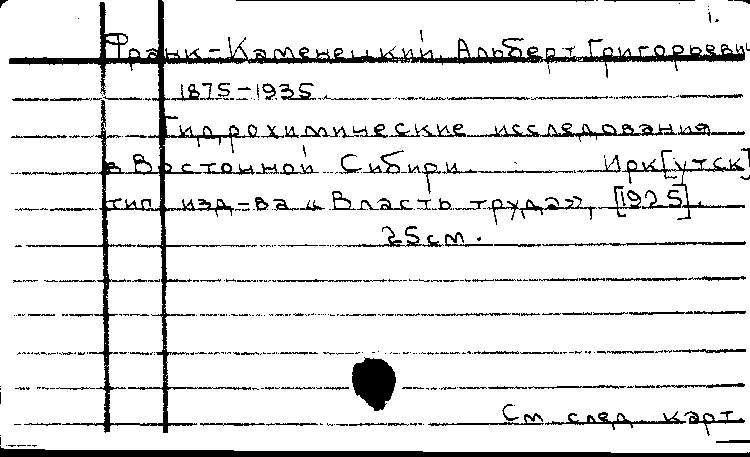 1.
Франк-Каменецкий, Альберт Григорьевич
1875-1935.
Гидрохимические исследования
в Восточной Сибири. Ирк[утск]
тип. изд-ва «Власть труда», [1925].
25 см.
См. след. карт.